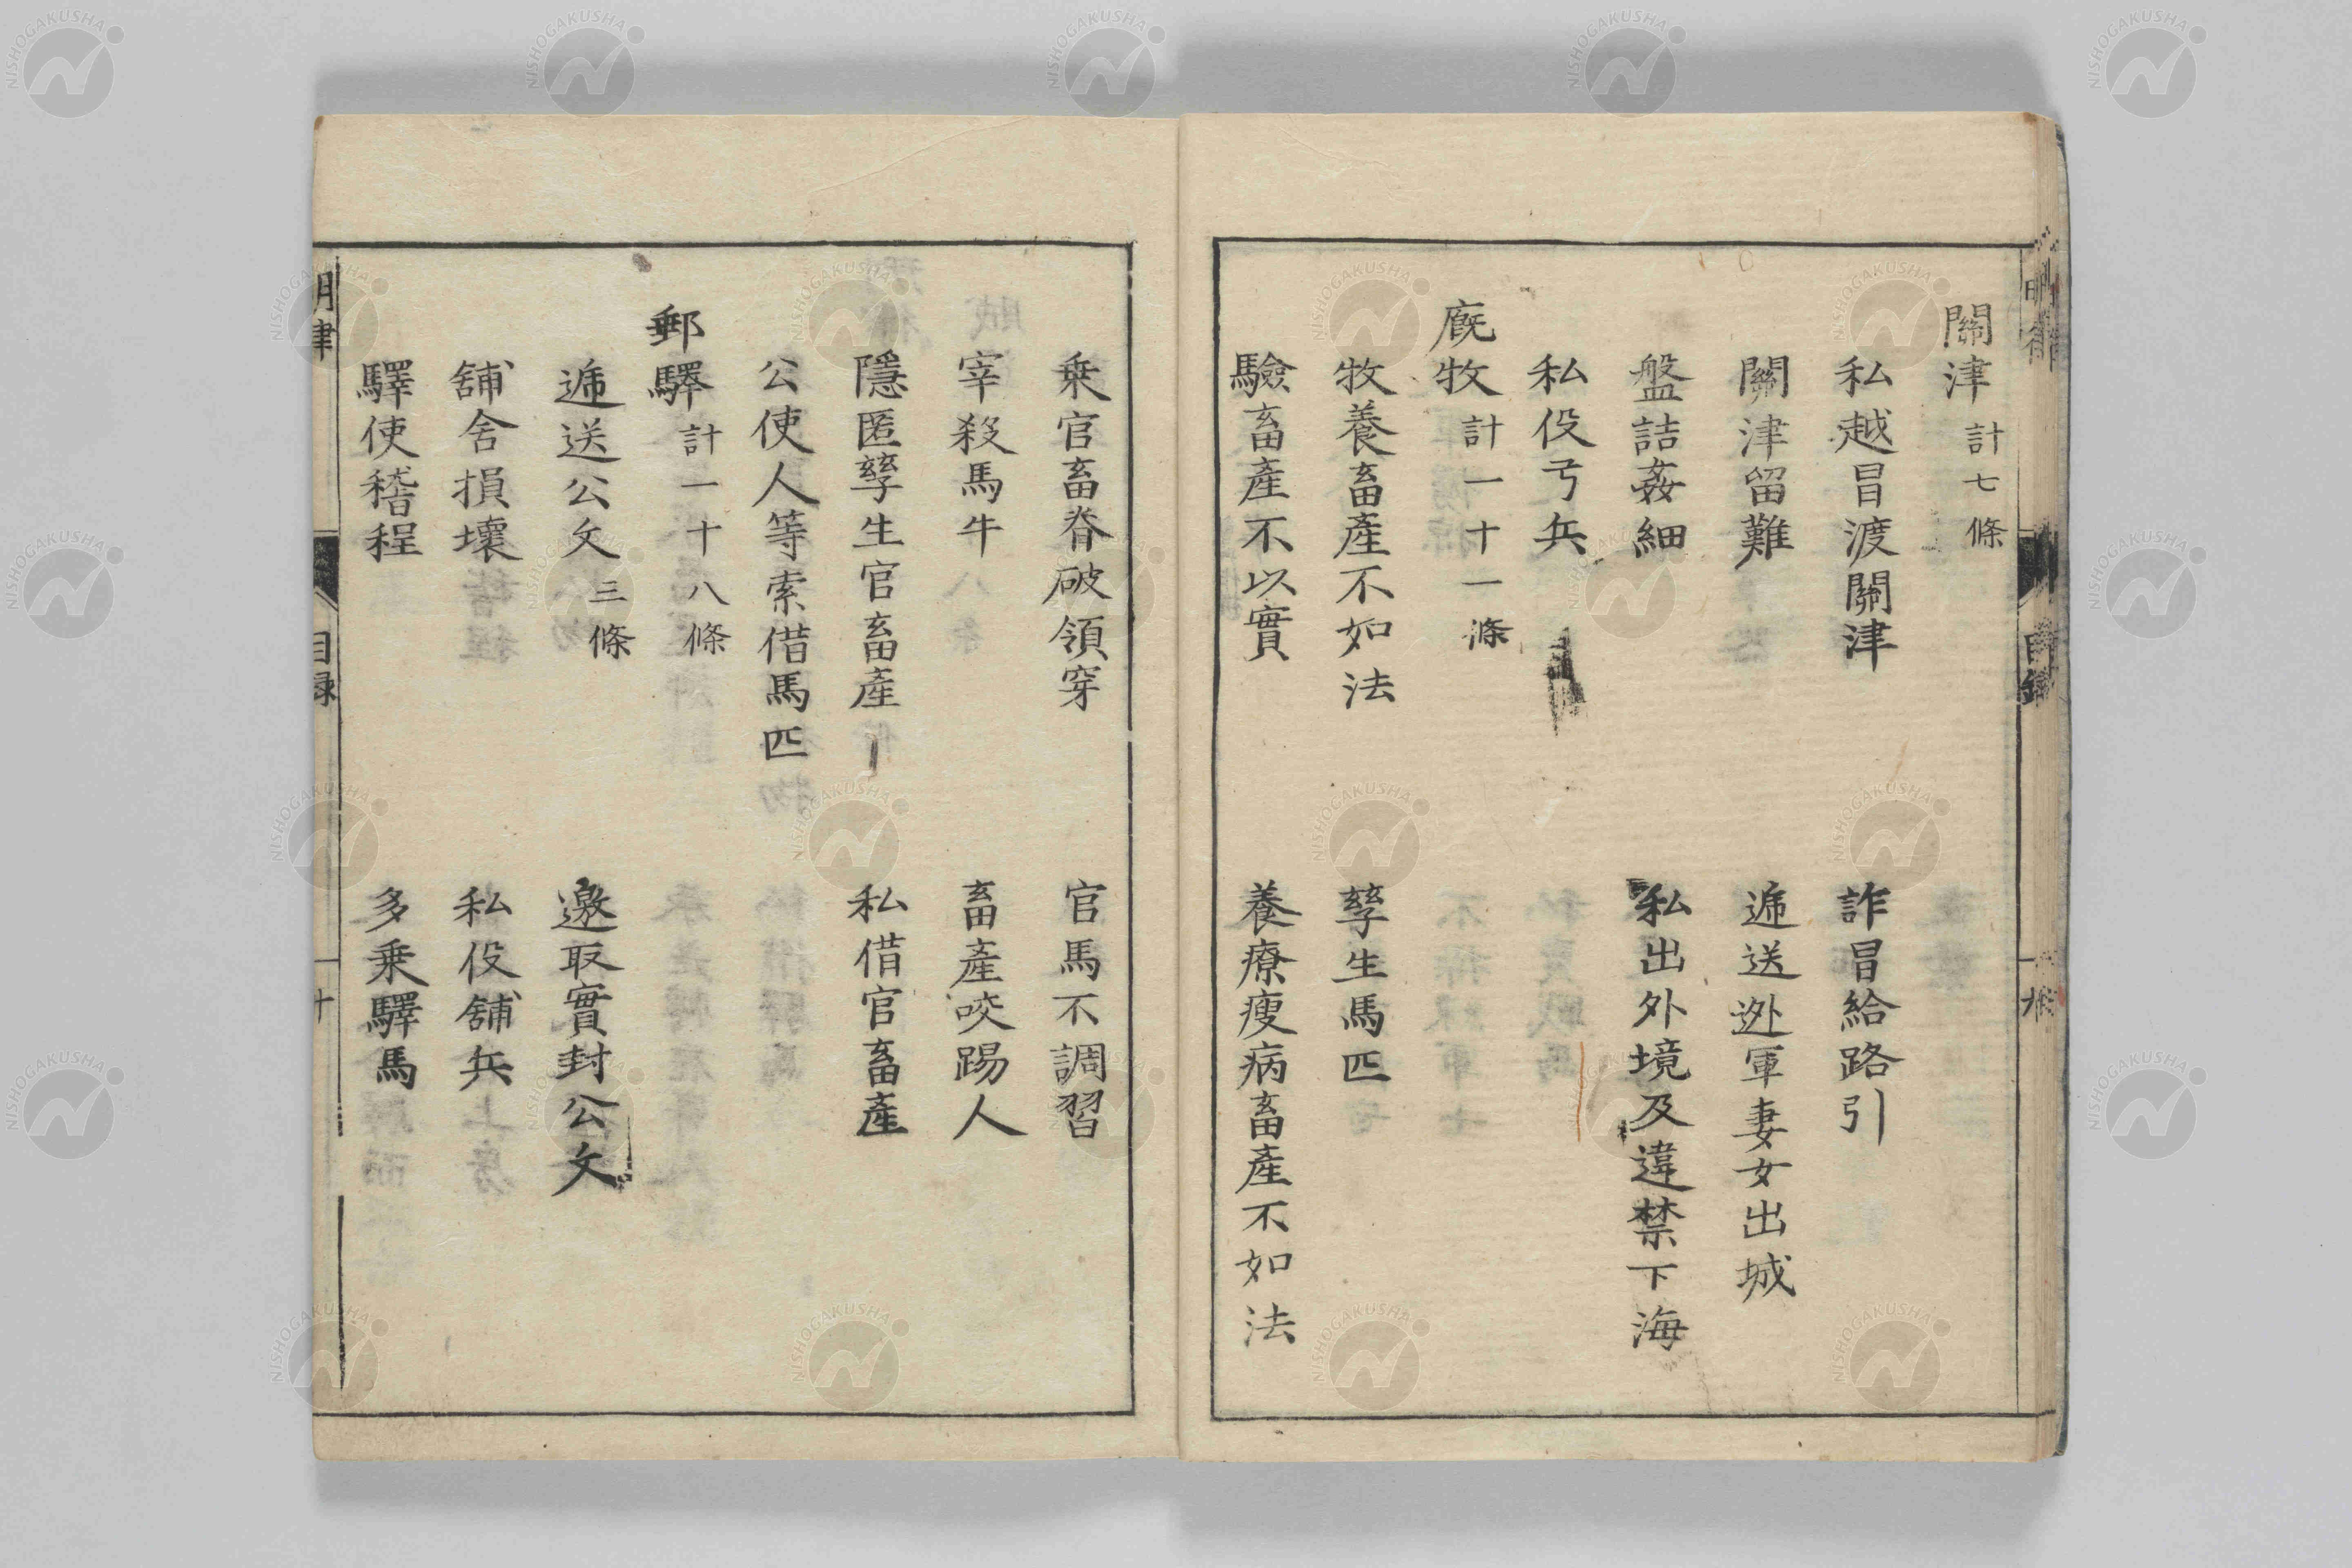 關津 計七條
私越冒渡關津 詐冒給路引
關津留難 逓送迯軍妻女出城
盤詰姦細 私出外境及違禁下海
私役弓兵
廐牧 計一十一條
牧養畜產不如法 孳生馬匹
驗畜產不以實 養療瘦病畜產不如法
乗官畜脊破領穿 官馬不調習
宰殺馬牛 畜產咬踢人
隱匿孳生官畜產 私借官畜產
公使人等索借馬匹
郵驛 計一十八條
逓送公文 三條 邀取實封公文
舖舍損壞 私役舖兵
驛使稽程 多乗驛馬
明律 目録 十
NISHOGAKUSHA